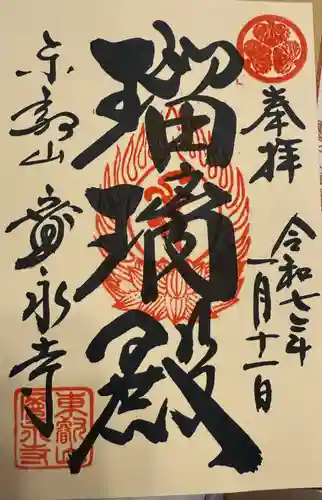 奉拝
令和七年
一月十一日
瑠璃殿
东叡山
寛永寺
東叡山
寛永寺